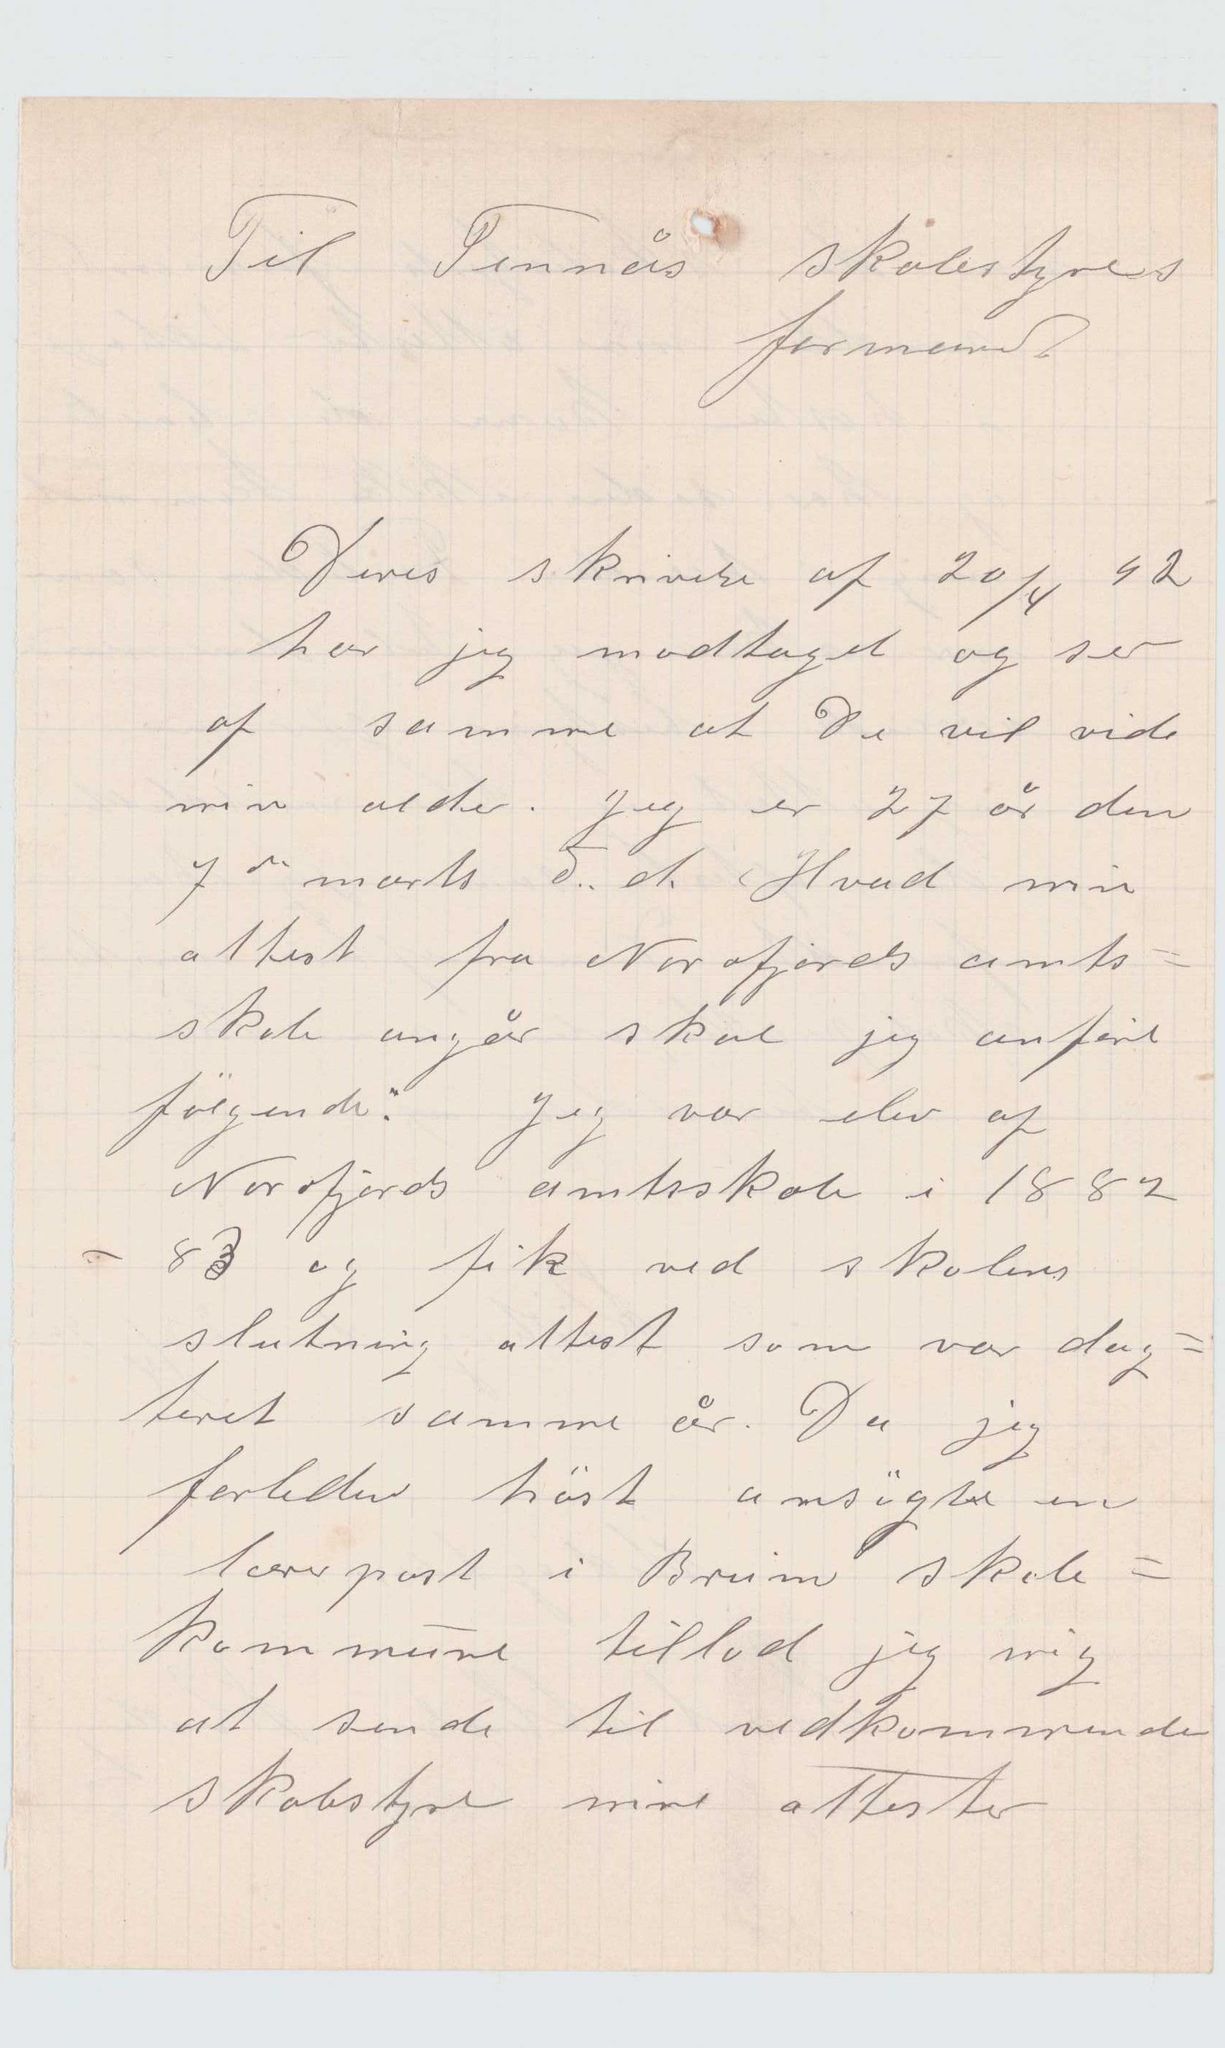 Til Tennås skolestyres
formand
Deres skrivelse af 20/4 92
har jeg modtaget og ser
af samme at De vil vide
min alder. Jeg er 27 år den
7de marts d. å. Hvad min
attest fra Norfjords amts=
skole angår skal jeg anføre
følgende: Jeg var elev af
Norfjords amtsskole i 1882
- 83 og fik ved skolens
slutning attest som var dag=
teret samme år. Da jeg
forleden höst ansögte en
lærerpost i Breim skole=
kommune tillod jeg mig
at sende til vedkommende
skolestyre mine attester